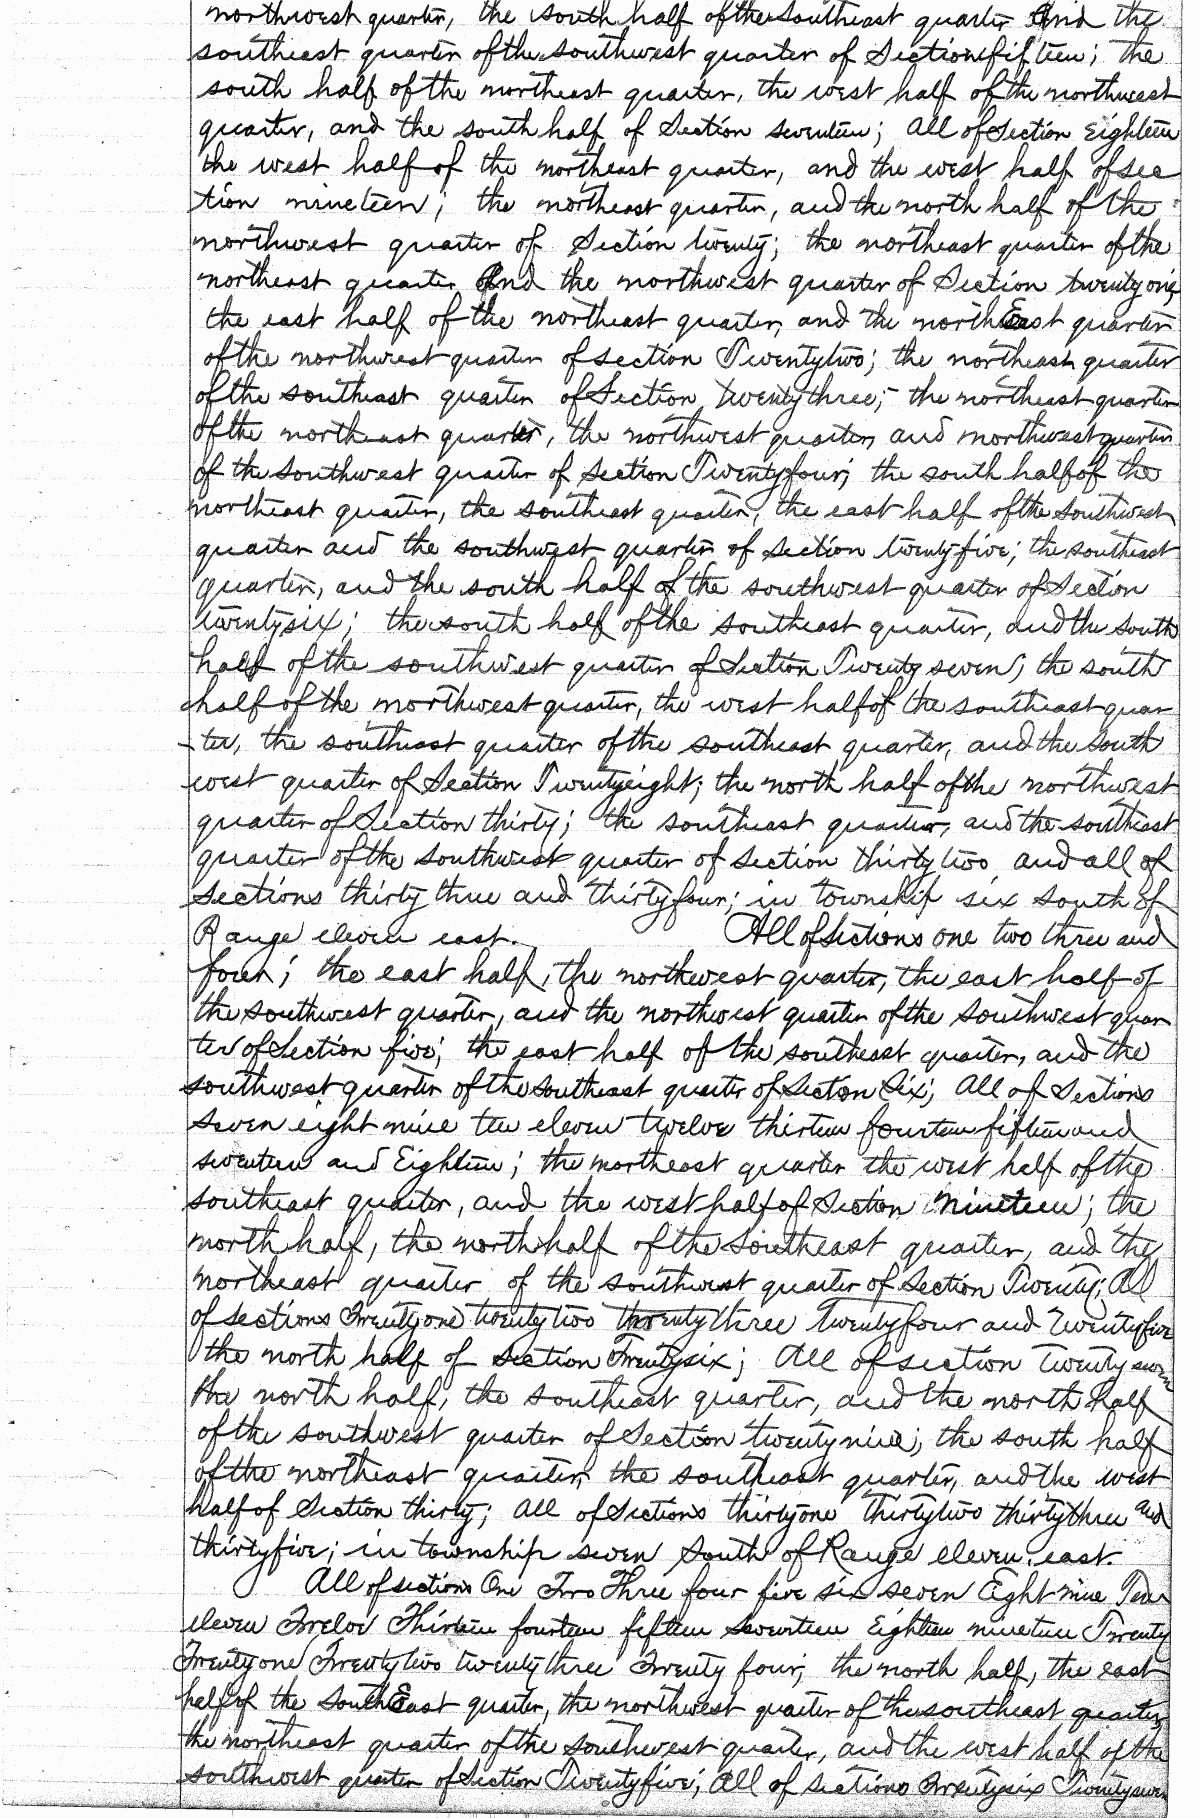 northwest quarter, the south half of the Southeast quarter And the
southeast quarter of the Southwest quarter of Section fifteen; the
south half of the northeast quarter, the west half of the northwest
quarter, and the south half of Section seventeen; All of Section Eighteen
the west half of the northeast quarter, and the west half of sec
tion nineteen; the northeast quarter, and the north half of the
northwest quarter of Section twenty; the northeast quarter of the
northeast quarter And the northwest quarter of Section twenty one
the east half of the northeast quarter, and the northEast quarter
of the northwest quarter of section Twentytwo; the northeast quarter
of the southeast quarter of Section twenty three; the northeast quarter
of the northeast quarter, the northwest quarter, and northwest quarter
of the southwest quarter of Section Twentyfour; the south half of the
northeast quarter, the southeast quarter, the east half of the Southwest
quarter and the southwest quarter of section twentyfive; the southeast
quarter, and the south half of the southwest quarter of Section
twentysix; the south half of the southeast quarter, and the South
half of the southwest quarter of Section Twenty seven; the south
half of the northwest quarter, the west half of the southeast quar
-ter, the southeast quarter of the southeast quarter, and the South
west quarter of Section Twentyeight; the north half of the northwest
quarter of Section thirty; the southeast quarter, and the southeast
quarter of the southwest quarter of section thirty two and all of
sections thirty three and thirtyfour; in township six south of
Range eleven east. All of Sections one two three and
four; the east half, the northwest quarter, the east half of
the southwest quarter, and the northwest quarter of the southwest quar
ter of Section five; the east half of the southeast quarter, and the
southwest quarter of the Southeast quarter of Section Six; All of Sections
seven eight nine ten eleven twelve thirteen fourteen fifteen and
seventeen and Eighteen; the northeast quarter the west half of the
southeast quarter, and the west half of Section nineteen; the
north half, the north half of the Southeast quarter, and the
northeast quarter of the southwest quarter of Section Twenty; All
of sections Twentyone twentytwo twenty three Twentyfour and Twentyfive
the north half of section Twentysix; All of section twenty seven
the north half, the southeast quarter, and the north half
of the southwest quarter of Section twenty nine; the south half
of the northeast quarter, the southeast quarter, and the west
half of Section thirty; All of Sections thirtyone thirtytwo thirtythree and
thirtyfive; in township seven South of Range eleven east.
All of sections One Two Three four five six seven Eight nine Ten
eleven Twelve Thirteen fourteen fifteen seventeen Eighteen nineteen Twenty
Twenty one Twentytwo twenty three Twenty four; the north half, the east
half of the SouthEast quarter, the northwest quarter of the southeast quarter,
the northeast quarter of the southwest quarter, and the west half of the
southwest quarter of Section Twentyfive; All of sections Twentysix Twentyseven